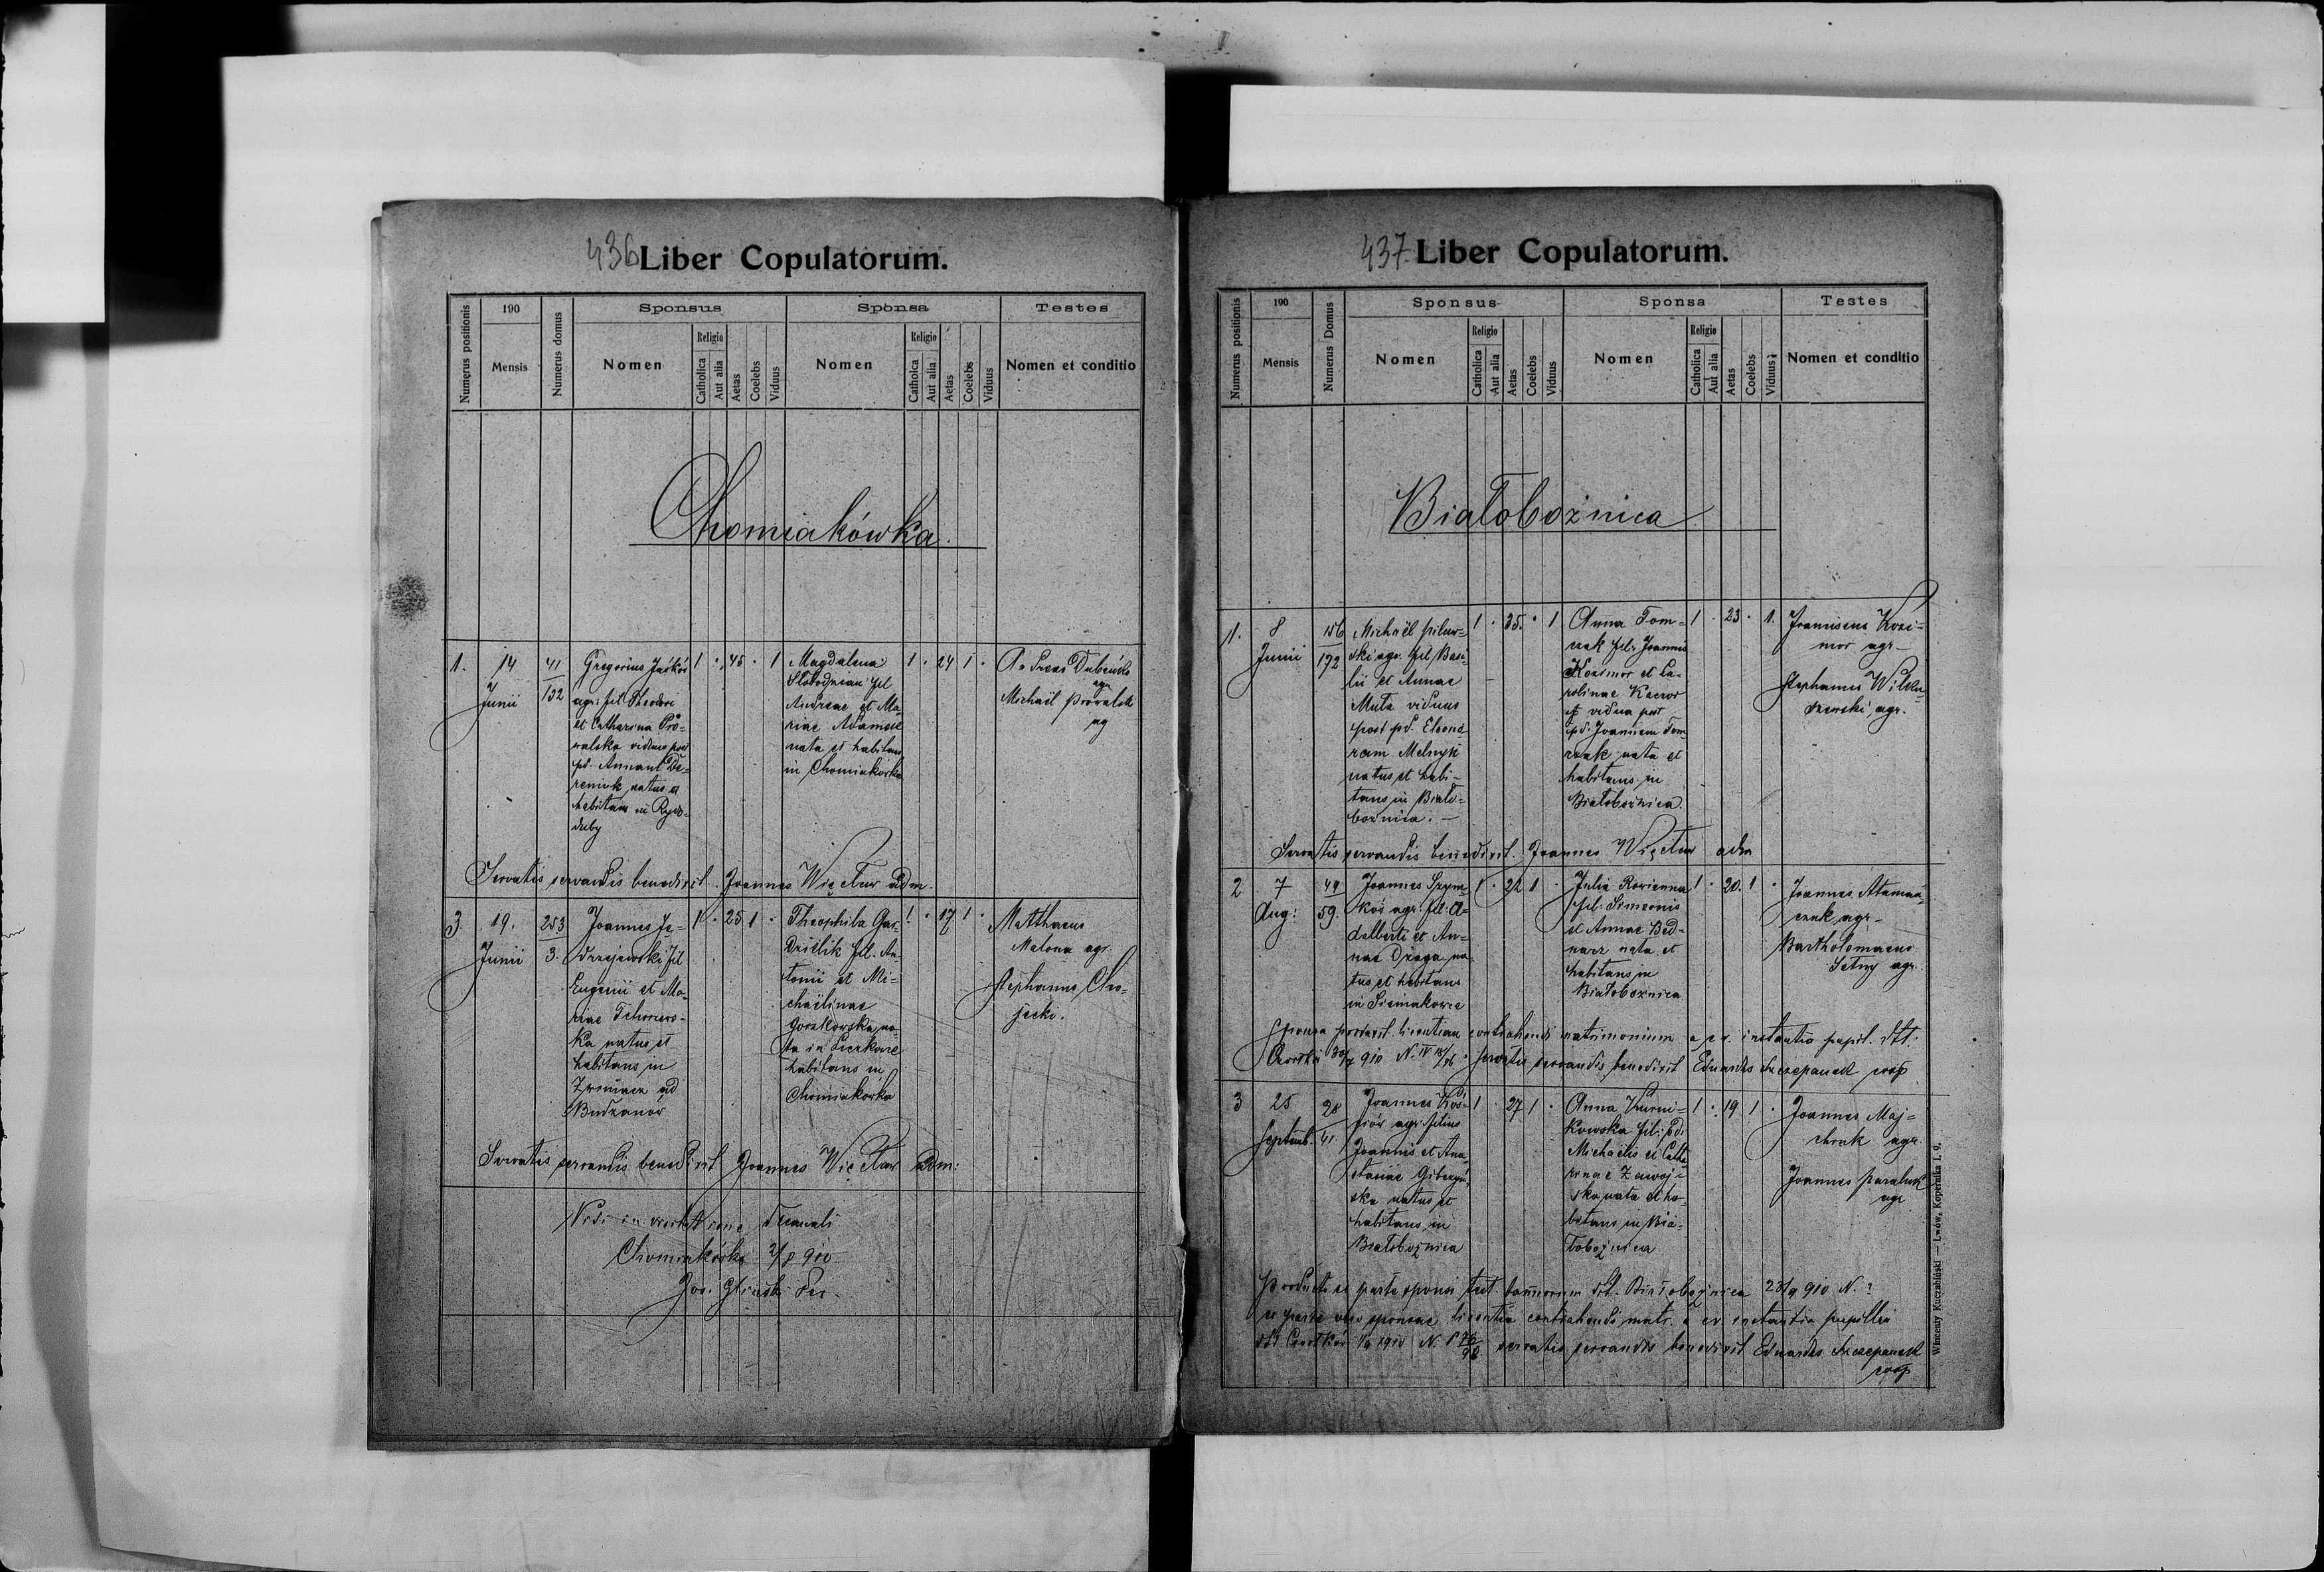 436 Liber Copulatorum.
Numerus positionis
190
Mensis
Numerus domus
Sponsus
Nomen
Religio
Catholica
Aut alia
Aetas
Coelebs
Viduus
Sponsa
Nomen
Religio
Catholica
Aut alia
Aetas
Coelebs
Viduus
Testes
Nomen et conditio
Chomiakówka.
1.
14
Junii
41
132
Gregorius Jaśków
agr. fil. Theodori
et Catharina Pro=
walska viduus post
pd. Annam De=
reniuk natus et
habitans in Rydo-
duby
1 . 45 . 1
Magdalena
Slobodzian fil
Andreae et Ma-
riae Adamsk
nata et habitans
in Chomiakówka
1 . 24 1 .
Andreas Dubański
agr
Michaël Prowalski
ag
Servatis servandis benedixit Joannes Więcław adm.
3.
19.
Junii
253
3.
Joannes Ję-
drzejewski fil
Eugenii et Ma-
riae Tchorzews-
ka natus et
habitans in
Zwiniacz ad
Budzanów
1 . 25 1 .
Theophila Gar-
dzielik fil. An-
tonii et Mi=
chaëlinae
Gorzkowska na-
ta in
habitans in
Chomiakówka
1 . 17 1 .
Matthaeus
Malona agr.
Stephanus Cho=
jecki.
Servatis servandis benedixit Joannes Więcław adm:
Vidi in visitatione decanali
Chomiakówka 2/8 910
Jos. Gliński Dec.
437. Liber Copulatorum.
Numerus positionis
190
Mensis
Numerus Domus
Sponsus
Nomen
Religio
Catholica
Aut alia
Aetas
Coelebs
Viduus
Sponsa
Nomen
Religio
Catholica
Aut alia
Aetas
Coelebs
Viduus
Testes
Nomen et conditio
Białobożnica
1.
8
Junii
156
172
Michaël Pilaw=
ski agr. fil. Basi=
lii et Annae
Muta viduus
post pd. Eleono
ram Melnyk
natus et habi-
tans in Biało=
bożnica. —
1 . 35. . 1
Anna Tom=
czak fil. Joannis
Kozimor et Ca-
rolinae Kaczor
vidua post
pd. Joannem Tom
czak nata et
habitans in
Białobożnica.
1 . 23 . 1.
Franciscus Kozi=
mor agr.
Stephanus Wilcz
szewski, agr.
Servatis servandis benedixit. Joannes Więcław adm
2
7
Aug:
49
59.
Joannes Szym
ków agr. fil. A=
dalberti et An=
nae Dżaga na
tus et habitans
in Siemiakowce
1 . 22 1 .
Julia Rowienna
fil. Simeonis
et Annae Bed-
narz nata et
habitans in
Białobożnica
1 . 20. 1 .
Joannes Ataman-
czuk agr.
Bartholomaeus
Setny agr.
Sponsa produxit licentiam contrahendi matrimonium a c.r. instantia pupil. dtt.
Czortków 30/7 910 N. IV servatis servandis benedixit Eduardus Szczepanek coop
3
25
Septemb.
28
41
Joannes Koś=
ciów agr. filius
Joannis et Ana
stasiae Gibczyń
ska natus et
habitans in
Białobożnica
1 . 27 1 .
Anna Kurni=
kowska fil. pd.
Michaelis et Catha
rinae Zawoj=
ska nata et ha-
bitans in Bia=
łobożnica
1 . 19 1 .
Joannes Maj=
chrak agr
Joannes Paraluk
agr
Producta ex parte sponsi test. bannorum dtt. Białobożnica 23/9 910 N. ?
ex parte vero sponsae licentia contrahendi matr. a c.r. instantia pupillari
dtt Czortków 1910 N. P 76/98 servatis servandis benedixit Eduardus Szczepanek
coop
Wincenty Kuczabiński — Lwów, Kopernika l. 9.